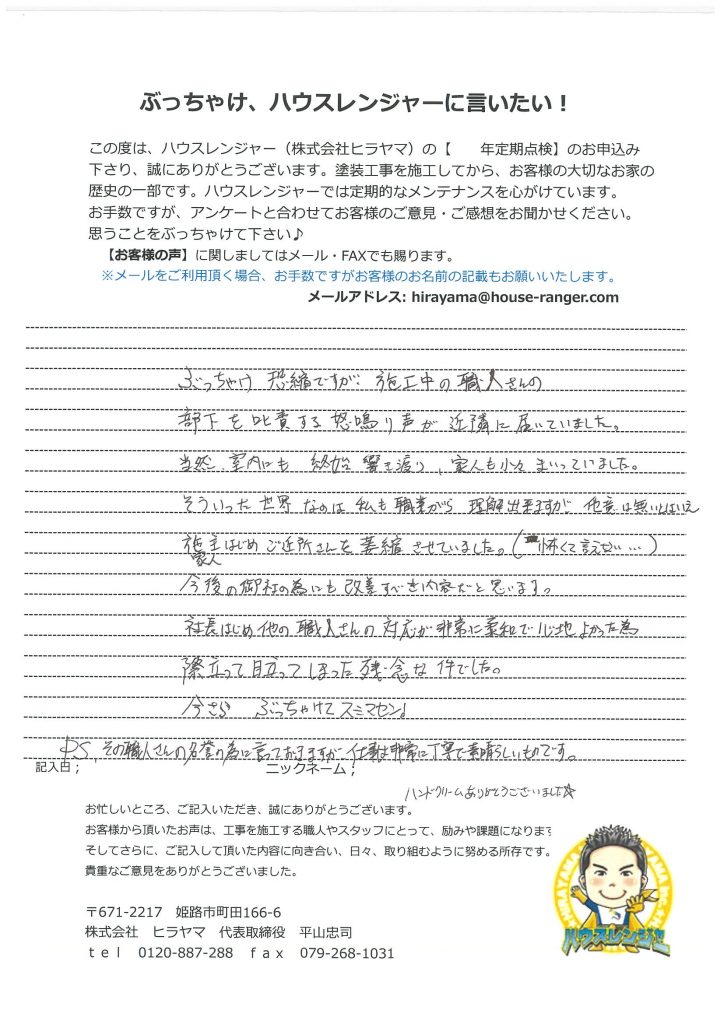 ぶっちゃけ、ハウスレンジャーに言いたい！
この度は、ハウスレンジャー（株式会社ヒラヤマ）の【　　年定期点検】のお申込み
下さり、誠にありがとうございます。塗装工事を施工してから、お客様の大切なお家の
歴史の一部です。ハウスレンジャーでは定期的なメンテナンスを心がけています。
お手数ですが、アンケートと合わせてお客様のご意見・ご感想をお聞かせください。
思うことをぶっちゃけて下さい♪
【お客様の声】に関しましてはメール・FAXでも賜ります。
※メールをご利用頂く場合、お手数ですがお客様のお名前の記載もお願いいたします。
メールアドレス: hirayama@house-ranger.com
ぶっちゃけ 恐縮ですが、施工中の職人さんの
部下を叱責する怒鳴り声が近隣に届いていました。
当然、室内にも 終始 響き渡り、家人も少々まいっていました。
そういった世界なのは私も職業がら 理解出来ますが、他意は無いとはいえ
施主はじめご近所さんを萎縮させていました。(怖くて言えない…)
家人
今後の御社の為にも改善すべき内容だと思います。
社長はじめ他の職人さんの対応が非常に柔和で心地よかった為
際立って目立ってしまった残念な件でした。
今さら ぶっちゃけてスミマセン!
P.S. その職人さんの名誉の為に言っておきますが、仕事は非常に丁寧で素晴らしいものです。
記入日；　ニックネーム；
ハンドクリームありがとうございました☆
お忙しいところ、ご記入いただき、誠にありがとうございます。
お客様から頂いたお声は、工事を施工する職人やスタッフにとって、励みや課題になります
そしてさらに、ご記入して頂いた内容に向き合い、日々、取り組むように努める所存です。
貴重なご意見をありがとうございました。
〒671-2217　姫路市町田166-6
株式会社　ヒラヤマ　代表取締役　平山忠司
ｔｅｌ　0120-887-288　ｆａｘ　079-268-1031
ハウスレンジャー